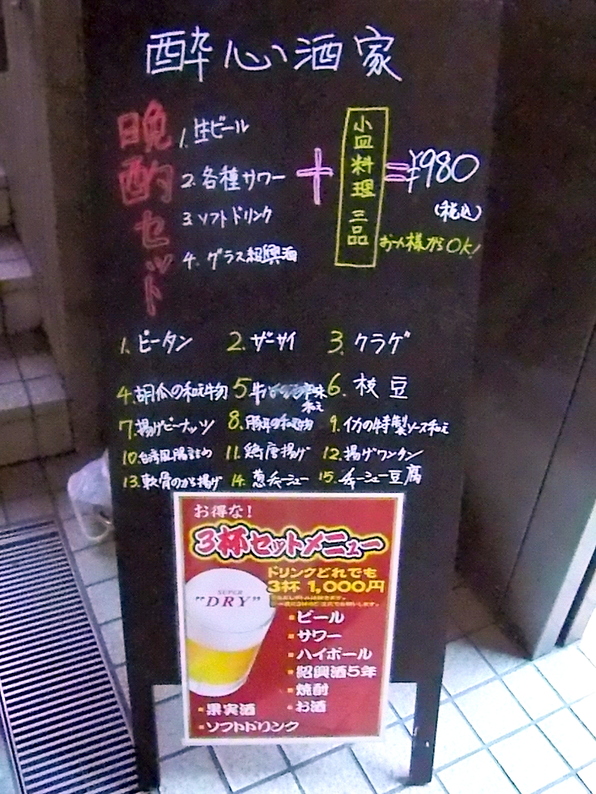 酔心酒家
晩酌セット
1. 生ビール
2. 各種サワー
3. ソフトドリンク
4. グラス紹興酒
+
小皿料理三品
=
¥980
(税込)
お一人様からOK!
1. ピータン 2. ザーサイ 3. クラゲ
4. 胡瓜の和え物 5. 和え 6. 枝豆
7. 揚げピーナッツ 8. の和え物 9. 特製ソース和え
10. 台湾風腸詰め 11. 鶏唐揚げ 12. 揚げワンタン
13. 軟骨のから揚げ 14. 葱チャーシュー 15. チャーシュー豆腐
お得な!
3杯セットメニュー
ドリンクどれでも
3杯 1,000円
SUPER
"DRY"
ビール
サワー
ハイボール
紹興酒5年
焼酎
果実酒 お酒
ソフトドリンク